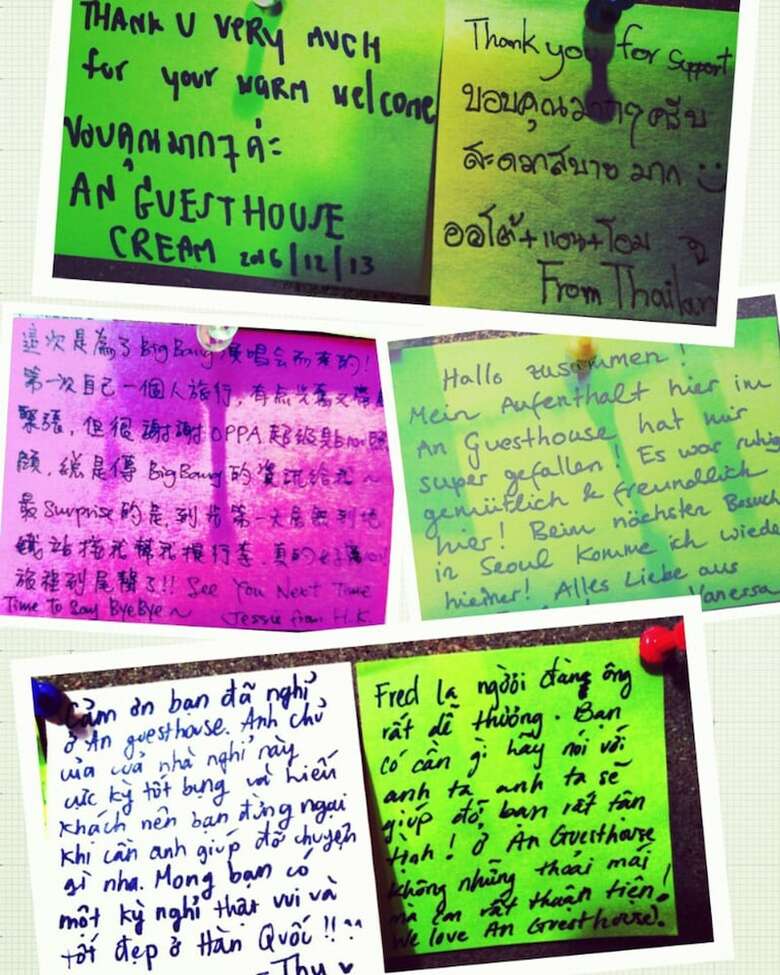 THANK U VERY MUCH
for your WARM Welcome
ขอบคุณมากๆ ค่ะ
AN GUESTHOUSE
CREAM 2016/12/13
Thank you for support
ขอบคุณมากๆครับ
สะดวกสบาย มาก :)
From Thailan
這次是為了BigBang演唱会而來的!
第一次自己一個人旅行,有点
緊張,但很謝謝OPPA超級
顧,總是傳BigBang的資訊給我~
最Surprise的是到步第一天
站接我幫我搬行李,真的
旅程到尾聲了!! See You Next Time
Time To Say ByeBye~ Jessie from H.K.
Hallo zusammen!
Mein Aufenthalt hier im
An Guesthouse hat mir
super gefallen! Es war ruhig
gemütlich & freundlich
hier! Beim nächsten Besuch
in Seoul komme ich wiede
hierher! Alles Liebe aus
Vanessa
Cảm ơn bạn đã nghỉ
ở An guesthouse. Anh chủ
của nhà nghỉ này
cực kỳ tốt bụng và hiếu
khách nên bạn đừng ngại
khi cần anh giúp đỡ chuyện
gì nha. Mong bạn có
một kỳ nghỉ thật vui và
tốt đẹp ở Hàn Quốc!! ^^
- Thu ♥
Fred là người đàng ông
rất dễ thương. Bạn
có cần gì hãy nói với
anh ta anh ta sẽ
giúp đỡ bạn rất tận
tình! Ở An Guesthouse
không những thoải mái
mà còn rất thuận tiện!
We love An Guesthouse.